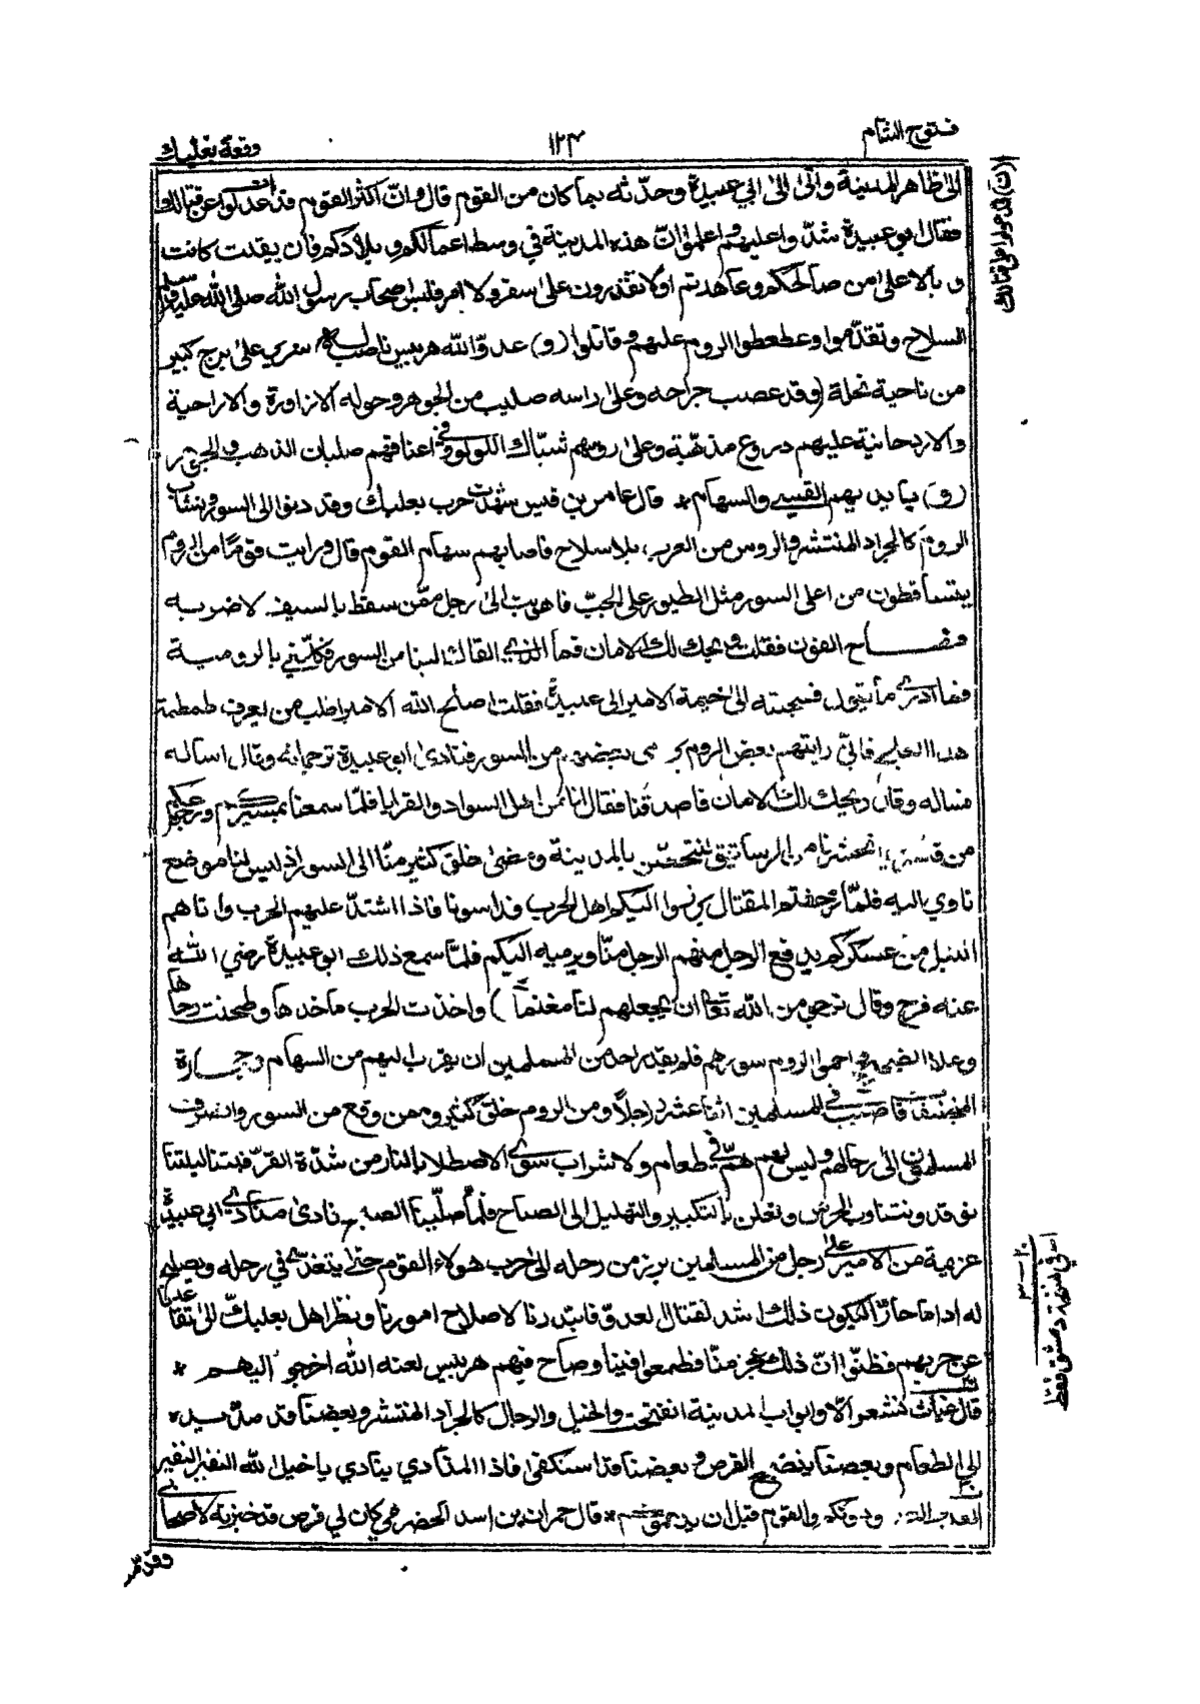 فتوح الشام
١٢٣
وقعة بعلبك
الى ظاهر المدينة واتى الى ابي عبيدة وحدثه بما كان من القوم قال وانّ اكثر القوم قد عدلوا عن قتالك
فقال ابو عبيدة شدّوا عليهم واعلموا انّ هذه المدينة في وسط اعمالكم وبلادكم فان بقيت كانت
وبالا على من صالحكم وعاهدتم ولا تقدرون على سفر ولا امر فلبس اصحاب رسول الله صلى الله عليه وسلم
السلاح وتقدّموا وعطعطوا الروم عليهم وقاتلوا (و) عدوّ الله هربيس ناصب له سرير على برج كبير
من ناحية نحلة (وقد عصب جراحه وعلى راسه صليب من الجوهر وحوله الازاورة والاراحية
والاربحانية عليهم دروع مذهّبة وعلى رؤسهم شبّاك اللولو وفي اعناقهم صلبان الذهب والجوهر
(و) بايديهم القسي والسهام * قال عامر بن قيس شهدت حرب بعلبك وقد دنوا الى السور ونشاب
الروم كالجراد المنتشر والروس من العرب بلا سلاح فاصابهم سهام القوم قال ورايت قوما من الروم
يتساقطون من اعلى السور مثل الطيور على الحبّ فاهويت الى رجل ممّن سقط بالسيف لاضربه
فصاح الغوث فقلت ويحك لك الامان فما الذي القاك الينا من السور فكلّمني بالرومية
فما ادري ما يقول فسحبته الى خيمة الامير ابي عبيدة فقلت اصلح الله الامير اطلب من يعرف طمطمة
هذا العلج فاني رايتهم بعض الروم يرمي بعضهم من السور فنادى ابو عبيدة ترجمانه وقال اساله
فساله وقال ويحك لك الامان فاصدقنا فقال انا من اهل السواد والقرايا فلمّا سمعنا بمسيركم ورجوعكم
من قنسرين انحشرنا من الرساتيق لنتحصّن بالمدينة ومضى خلق كثير منّا الى السور اذ ليس لنا موضع
ناوي اليه فلمّا زحفتم للقتال برزوا اليكم اهل الحرب فداسونا فاذا اشتدّ عليهم الحرب واتاهم
النبل من عسكركم يدفع الرجل منهم الرجل منّا ويرميه اليكم فلمّا سمع ذلك ابو عبيدة رضي الله
عنه فرح وقال نرجي من الله تعالى ان يجعلهم لنا مغنماً) واخذت الحرب ماخذها وطحنت رحاها
وعلا الضجيج واحموا الروم سورهم فلم يقدر احد من المسلمين ان يقرب اليهم من السهام وحجارة
المنجنيق فاصيب في المسلمين اثنا عشر رجلاً ومن الروم خلق كثير ومن وقع من السور وانصرف
المسلمون الى رحالهم وليس لهم همّ في طعام ولا شراب سوى الاصطلا بالنار من شدّة القرّ فبتنا ليلتنا
نوقد ونتناوب الحرس ونعلن بالتكبير والتهليل الى الصباح فلمّا صلّينا الصبح نادى منادي ابي عبيدة
عزمية من الامير على رجل من المسلمين برز من رحله الى حرب هولاء القوم حتى يتغدّى في رحله ويصلح
له اداما حارّا ليكون ذلك اشد لقتال لعدوّ فابتدرنا لاصلاح امورنا ونظر اهل بعلبكّ الى تقاعدنا
عن حربهم فظنّوا انّ ذلك عجز منّا فطمعوا فينا وصاح فيهم هربيس لعنه الله اخرجوا اليهم *
قال غياث فلم نشعر الّا وابواب المدينة انفتحت والخيل والرجال كالجراد المنتشر وبعضنا قد مدّ يده
الى الطعام وبعضنا ينضج القرص وبعضنا قد استكفى فاذا المنادي ينادي يا خيل الله النفير النفير
ودونكم والقوم قبل ان يدهموكم * قال حمران بن اسد الحضرمي كان لي قرص قد خبزته لاصحابي
(ن) قد عولوا على قتالك
٢٠ — ٣
اسقي نسخة دمشق فقط